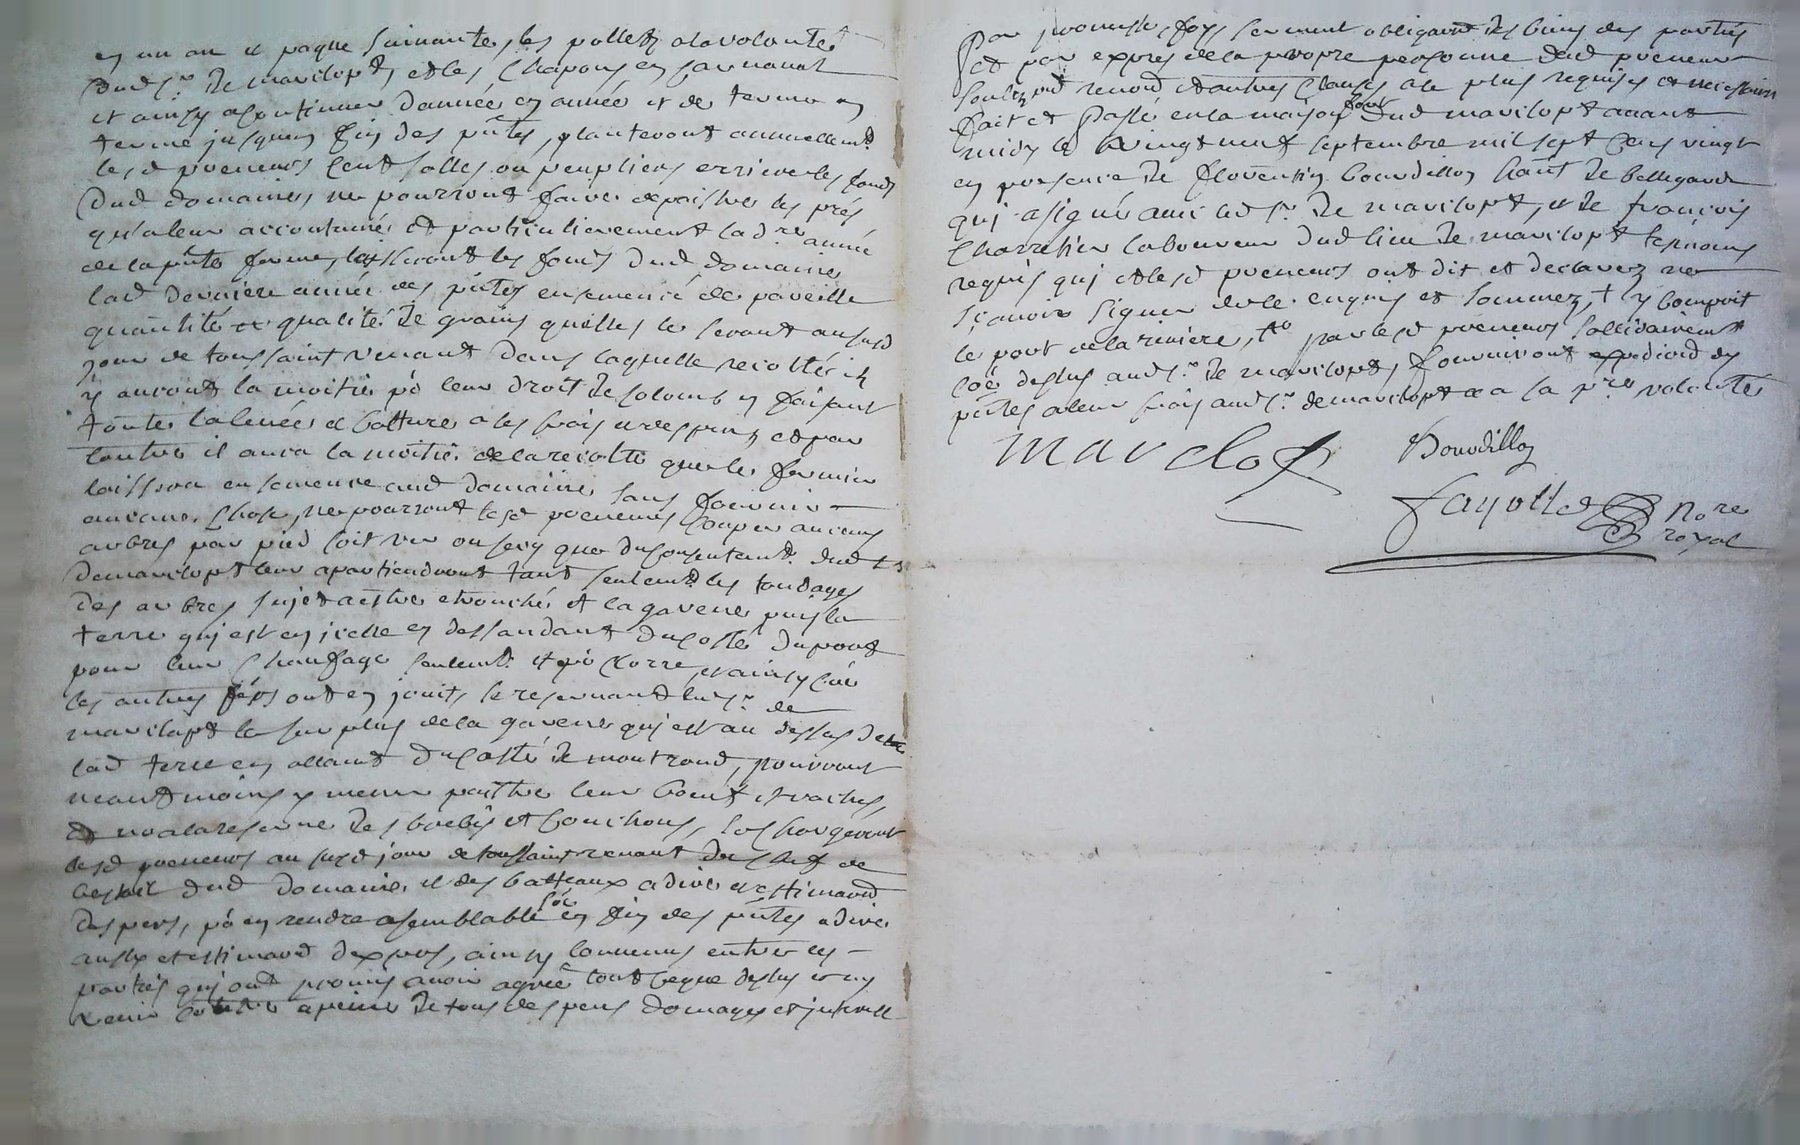 en un an et paque suivante, les pollets a la volonté
dud sr. de marclopt, et les chapons en carnaval
et ainsy a continuer d'année en année et de terme en
terme jusques fin des pntes, planteront annuellemt.
lesd preneurs cent solles ou peupliers erriere les fonds
dud domaine, ne pourront faire depaistre les prés
qu'a leur accoutumé et particulierement lad. re année
de la pnte ferme, laisseront les fonds dud domaine
lad derniere année des pntes ensemencé de pareille
quantité et qualité de grains qu'elles le seront aususd
jour de toussaint venant dans laquelle recolte ils
y auront la moitié po leur droit de colomb en faisant
toutte la levée et batture a ses frais et despens et par
contre il aura la moitié de la recolte que le fermier
laissera en semence aud domaine sans fournir
aucune chose, ne pourront lesd preneurs couper aucuns
arbres par pied soit vert ou secq que du consentemt. dud sr
demarclopt leur apartiendront tant seulemt. les tondages
des arbres sujet a estre etronché et la gavere puis la
terre qui est en icelle en dessandant du costé du pont
pour leur chauffage seulemt. et po clorre, et ainsy que
les autres frs ont en jouit, se reservant led sr. de
marclopt le surplus de la gavere qui est au dessus de
lad terre en allant du costé de montrond, pourront
neantmoins y mener paitre leur boeuf et vaches,
et no a la reserve des brebis et couchons, se chargeront
lesd preneurs au susd jour de toussaint venant du chef de
bestail dud domaine, et des batteaux a dire et estimaon
despers, po en rendre a semblable coe en fin des pntes a dire
aussy et estimaon dexpers, ainsy convenus entre les
parties qui ont promis avoir agreé tout ceque dessus et ny
venir contre a peine de tous despens domages et interest
Par promesse, foy, serment obligaon des biens des parties
et par expres de la propre personne dud preneur
soubz. ont renond et autres clauses a le plus requises et necessaires
fait et Passé en la maison fort dud marclopt avant
midy le vingt neuf septembre mil sept cens vingt
en presence de florentin bourdillon hant de bellegarde
qui a signé avec led sr. de marclopt, et de francois
Charretier laboureur dud lieu de marclopt tesmoins
requis qui et lesd preneurs ont dit et declarez ne
scavoir signer de ce enquis et sommez, + y compris
le port de la riviere, + par lesd preneurs sollidairement
coe dessus aud sr. de marclopt, fourniront expedion des
pntes a leur frais aud sr. demarclopt a sa pre volonté
marclopt Bourdillon
fayolle Nore
royal